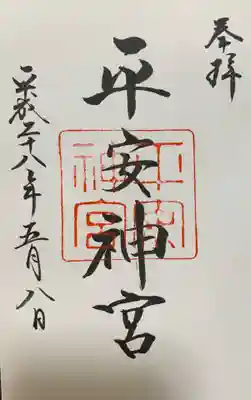 奉拝
平安神宮
平成二十八年五月八日